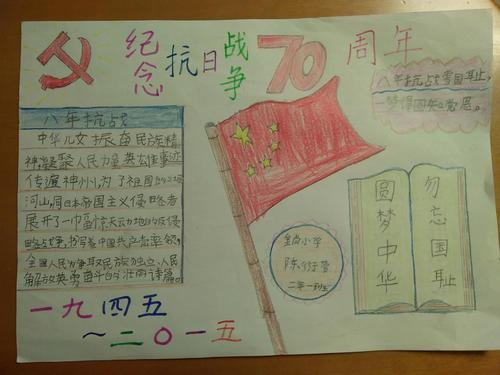 纪念抗日战争70周年
八年抗战雪国耻，
一梦得圆知党恩。
八年抗战
中华儿女振奋民族精
神，凝聚人民力量英雄事迹
传遍神州。为了祖国的
河山，向日本帝国主义侵略者
展开了一巾畐惊天动地的反侵
略战争，书写着中国共产党率领
全国人民力争取民族独立、人民
解放英勇奋斗的壮丽诗篇。
勿忘国耻
圆梦中华
小学
陈衍
二年一班
一九四五
～二〇一五